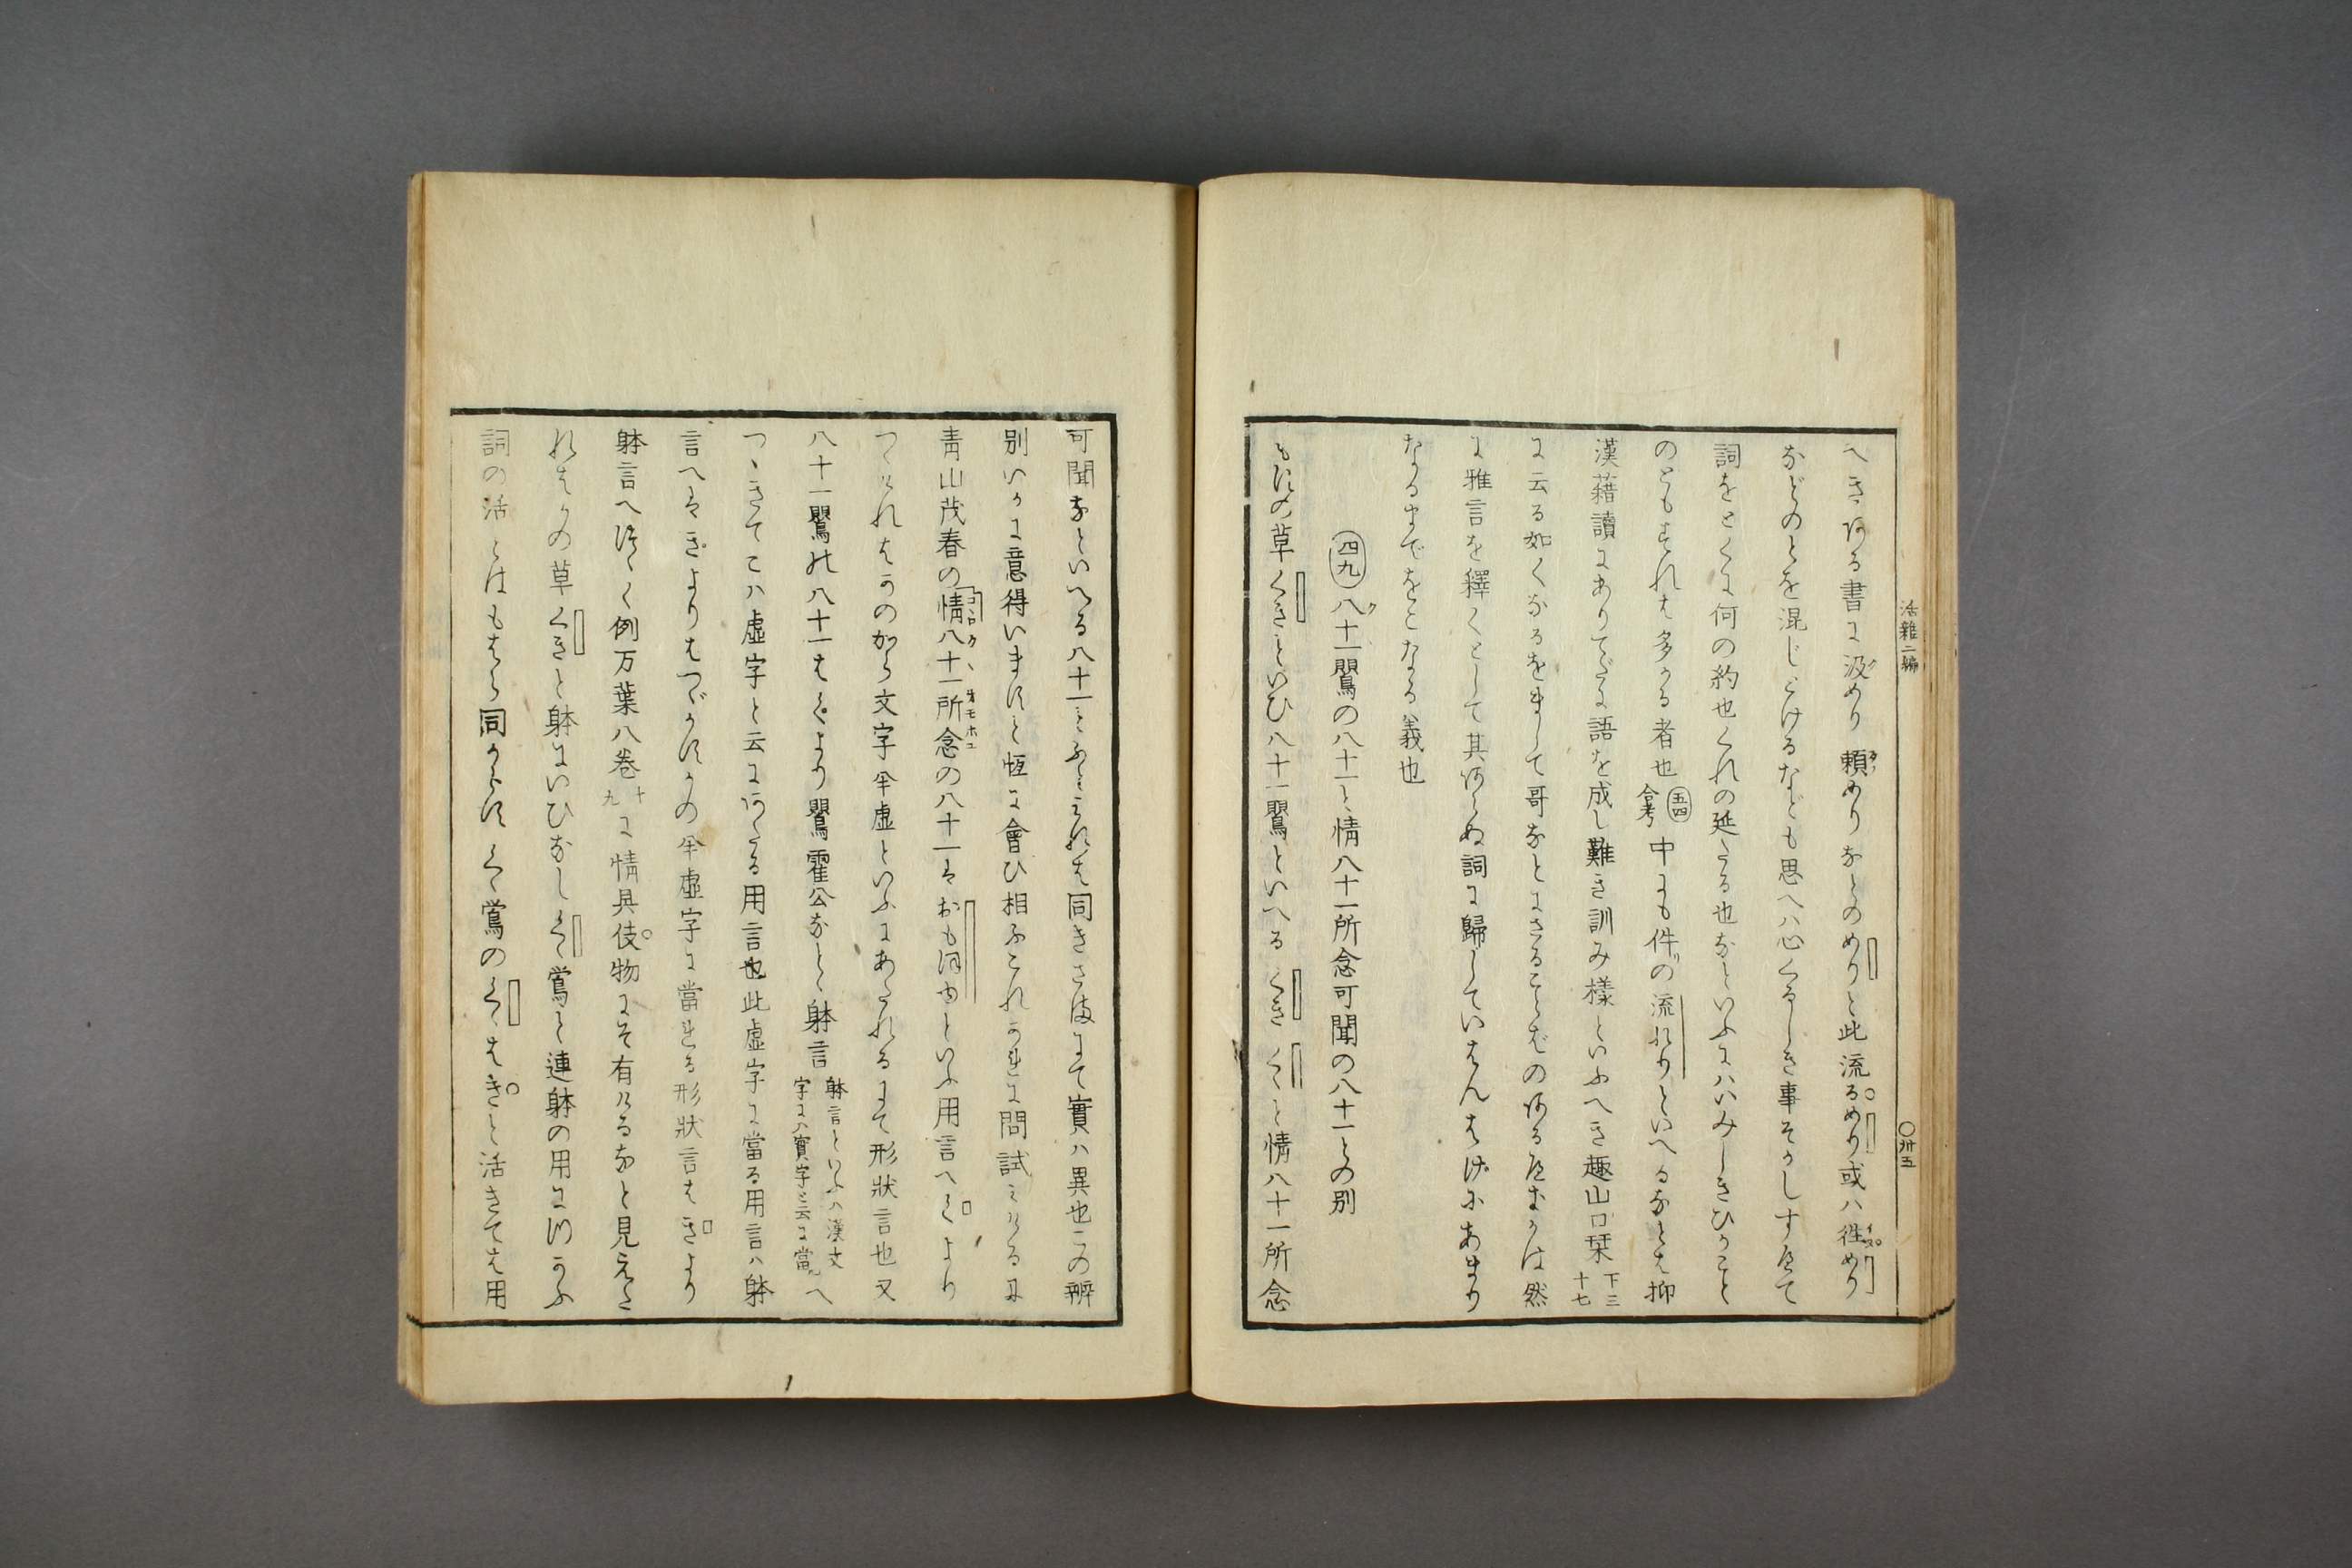 活雜二編
〇卅五
へきある書に汲めり頼めりなとのめりと此流るめり或ハ往めり
などのとを混じこけるなども思へハ心くるしき事そかしすべて
詞をとくに何の約也くれの延たる也なといふにハいみしきひかこと
のともそれは多かる者也 五四合考 中にも件の流れりといへるなとは抑
漢藉讀にありてだに語を成し難き訓み様といふへき趣山口栞 下三十七
に云る如くなるをまして哥なとにさることばのあるべきかは然
に雅言を釋くとして其あらぬ詞に歸していはんはげにあまり
なるまでをこなる義也
四九 八十一鸎の八十一と情八十一所念可聞の八十一との別
もしの草くきといひ八十一鸎といへるくきくゝと情八十一所念
可聞なといへる八十一とふとみれは同きさまにて實ハ異也この辨
別いかに意得いますと恆に會ひ相ふこれかれに問試みけるに
靑山茂春の情八十一所念の八十一はおもほゆといふ用言へくより
つゝけれはかの加ら文字半虚といふにあたれるにて形狀言也又
八十一鸎の八十一はくゝより鸎霍公なとゝ躰言 躰言といふハ漢文字にハ實字と云に當 へ
つゝきてこハ虚字と云にあたる用言也此虚字に當る用言ハ躰
言へはきよりはつゞかすかの半虚字に當れる形狀言はきより
躰言へ續く例万葉八巻 十九 に情具伎物にそ有けるなと見えた
れはかの草くきと躰にいひなしくゝ鸎と連躰の用にのたかふ
詞の活とはもはら同からすくゝ鸎のくゝはきと活きては用